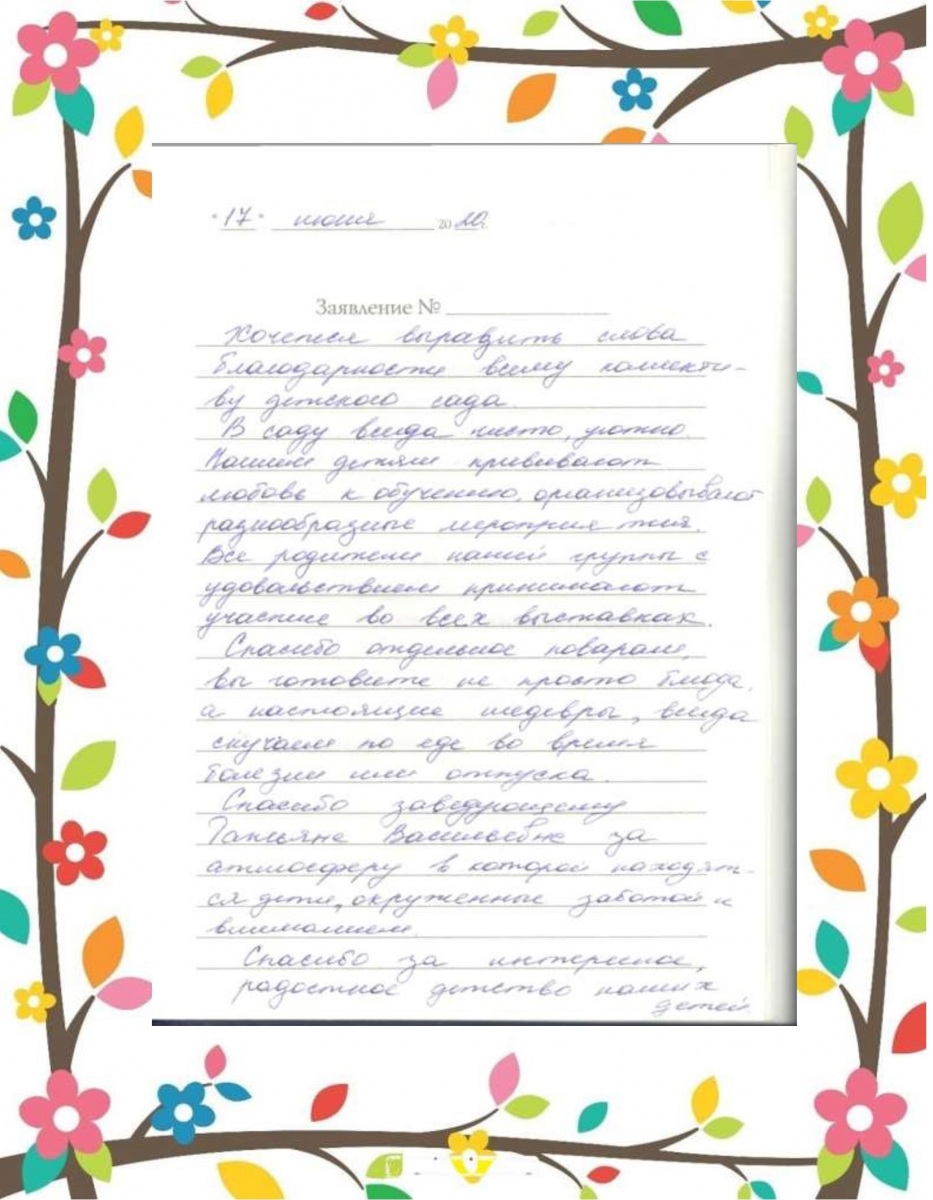 "17" июня 2020г.
Заявление №
Хочется выразить слова
благодарности всему коллекти-
ву детского сада.
В саду всегда чисто, уютно.
Нашим детям прививают
любовь к обучению, организовывают
разнообразные мероприятия.
Все родители нашей группы с
удовольствием принимают
участие во всех выставках.
Спасибо отдельное поварам,
вы готовите не просто блюда,
а настоящие шедевры, всегда
скучаем по еде во время
болезни или отпуска.
Спасибо заведующему
Татьяне Васильевне за
атмосферу в которой находят-
ся дети, окруженные заботой и
вниманием.
Спасибо за интересное,
радостное детство наших
детей.